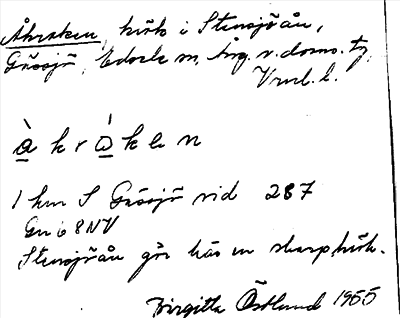 Åkroken, krök i Stensjöån,
Gåssjö, Edsele sn, Ång. v. doms. tg,
Vnrl. l.
à k r ó̱ k e n
1 km S Gåssjö vid 287
Gr: 6 8 NV
Stensjöån gör här en skarp krök.
Birgitta Östlund 1955